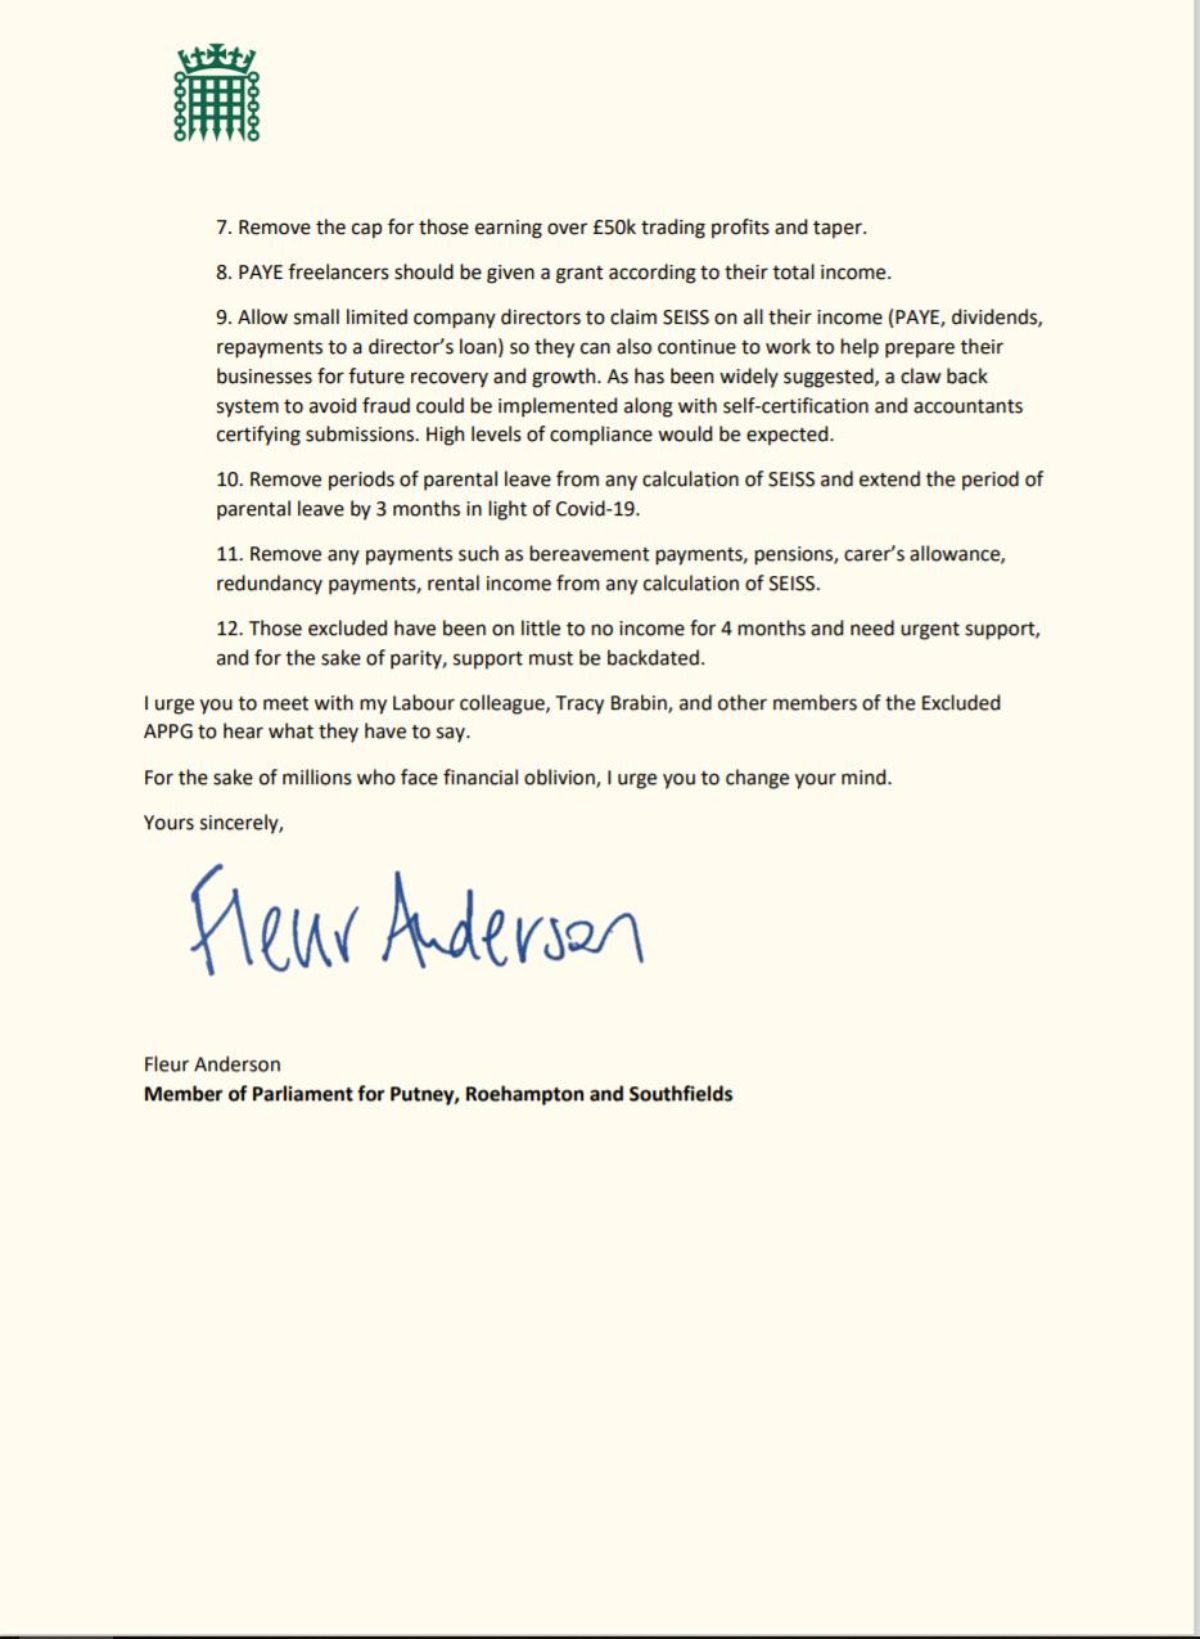 7. Remove the cap for those earning over £50k trading profits and taper.
8. PAYE freelancers should be given a grant according to their total income.
9. Allow small limited company directors to claim SEISS on all their income (PAYE, dividends,
repayments to a director’s loan) so they can also continue to work to help prepare their
businesses for future recovery and growth. As has been widely suggested, a claw back
system to avoid fraud could be implemented along with self-certification and accountants
certifying submissions. High levels of compliance would be expected.
10. Remove periods of parental leave from any calculation of SEISS and extend the period of
parental leave by 3 months in light of Covid-19.
11. Remove any payments such as bereavement payments, pensions, carer’s allowance,
redundancy payments, rental income from any calculation of SEISS.
12. Those excluded have been on little to no income for 4 months and need urgent support,
and for the sake of parity, support must be backdated.
I urge you to meet with my Labour colleague, Tracy Brabin, and other members of the Excluded
APPG to hear what they have to say.
For the sake of millions who face financial oblivion, I urge you to change your mind.
Yours sincerely,
Fleur Anderson
Fleur Anderson
Member of Parliament for Putney, Roehampton and Southfields